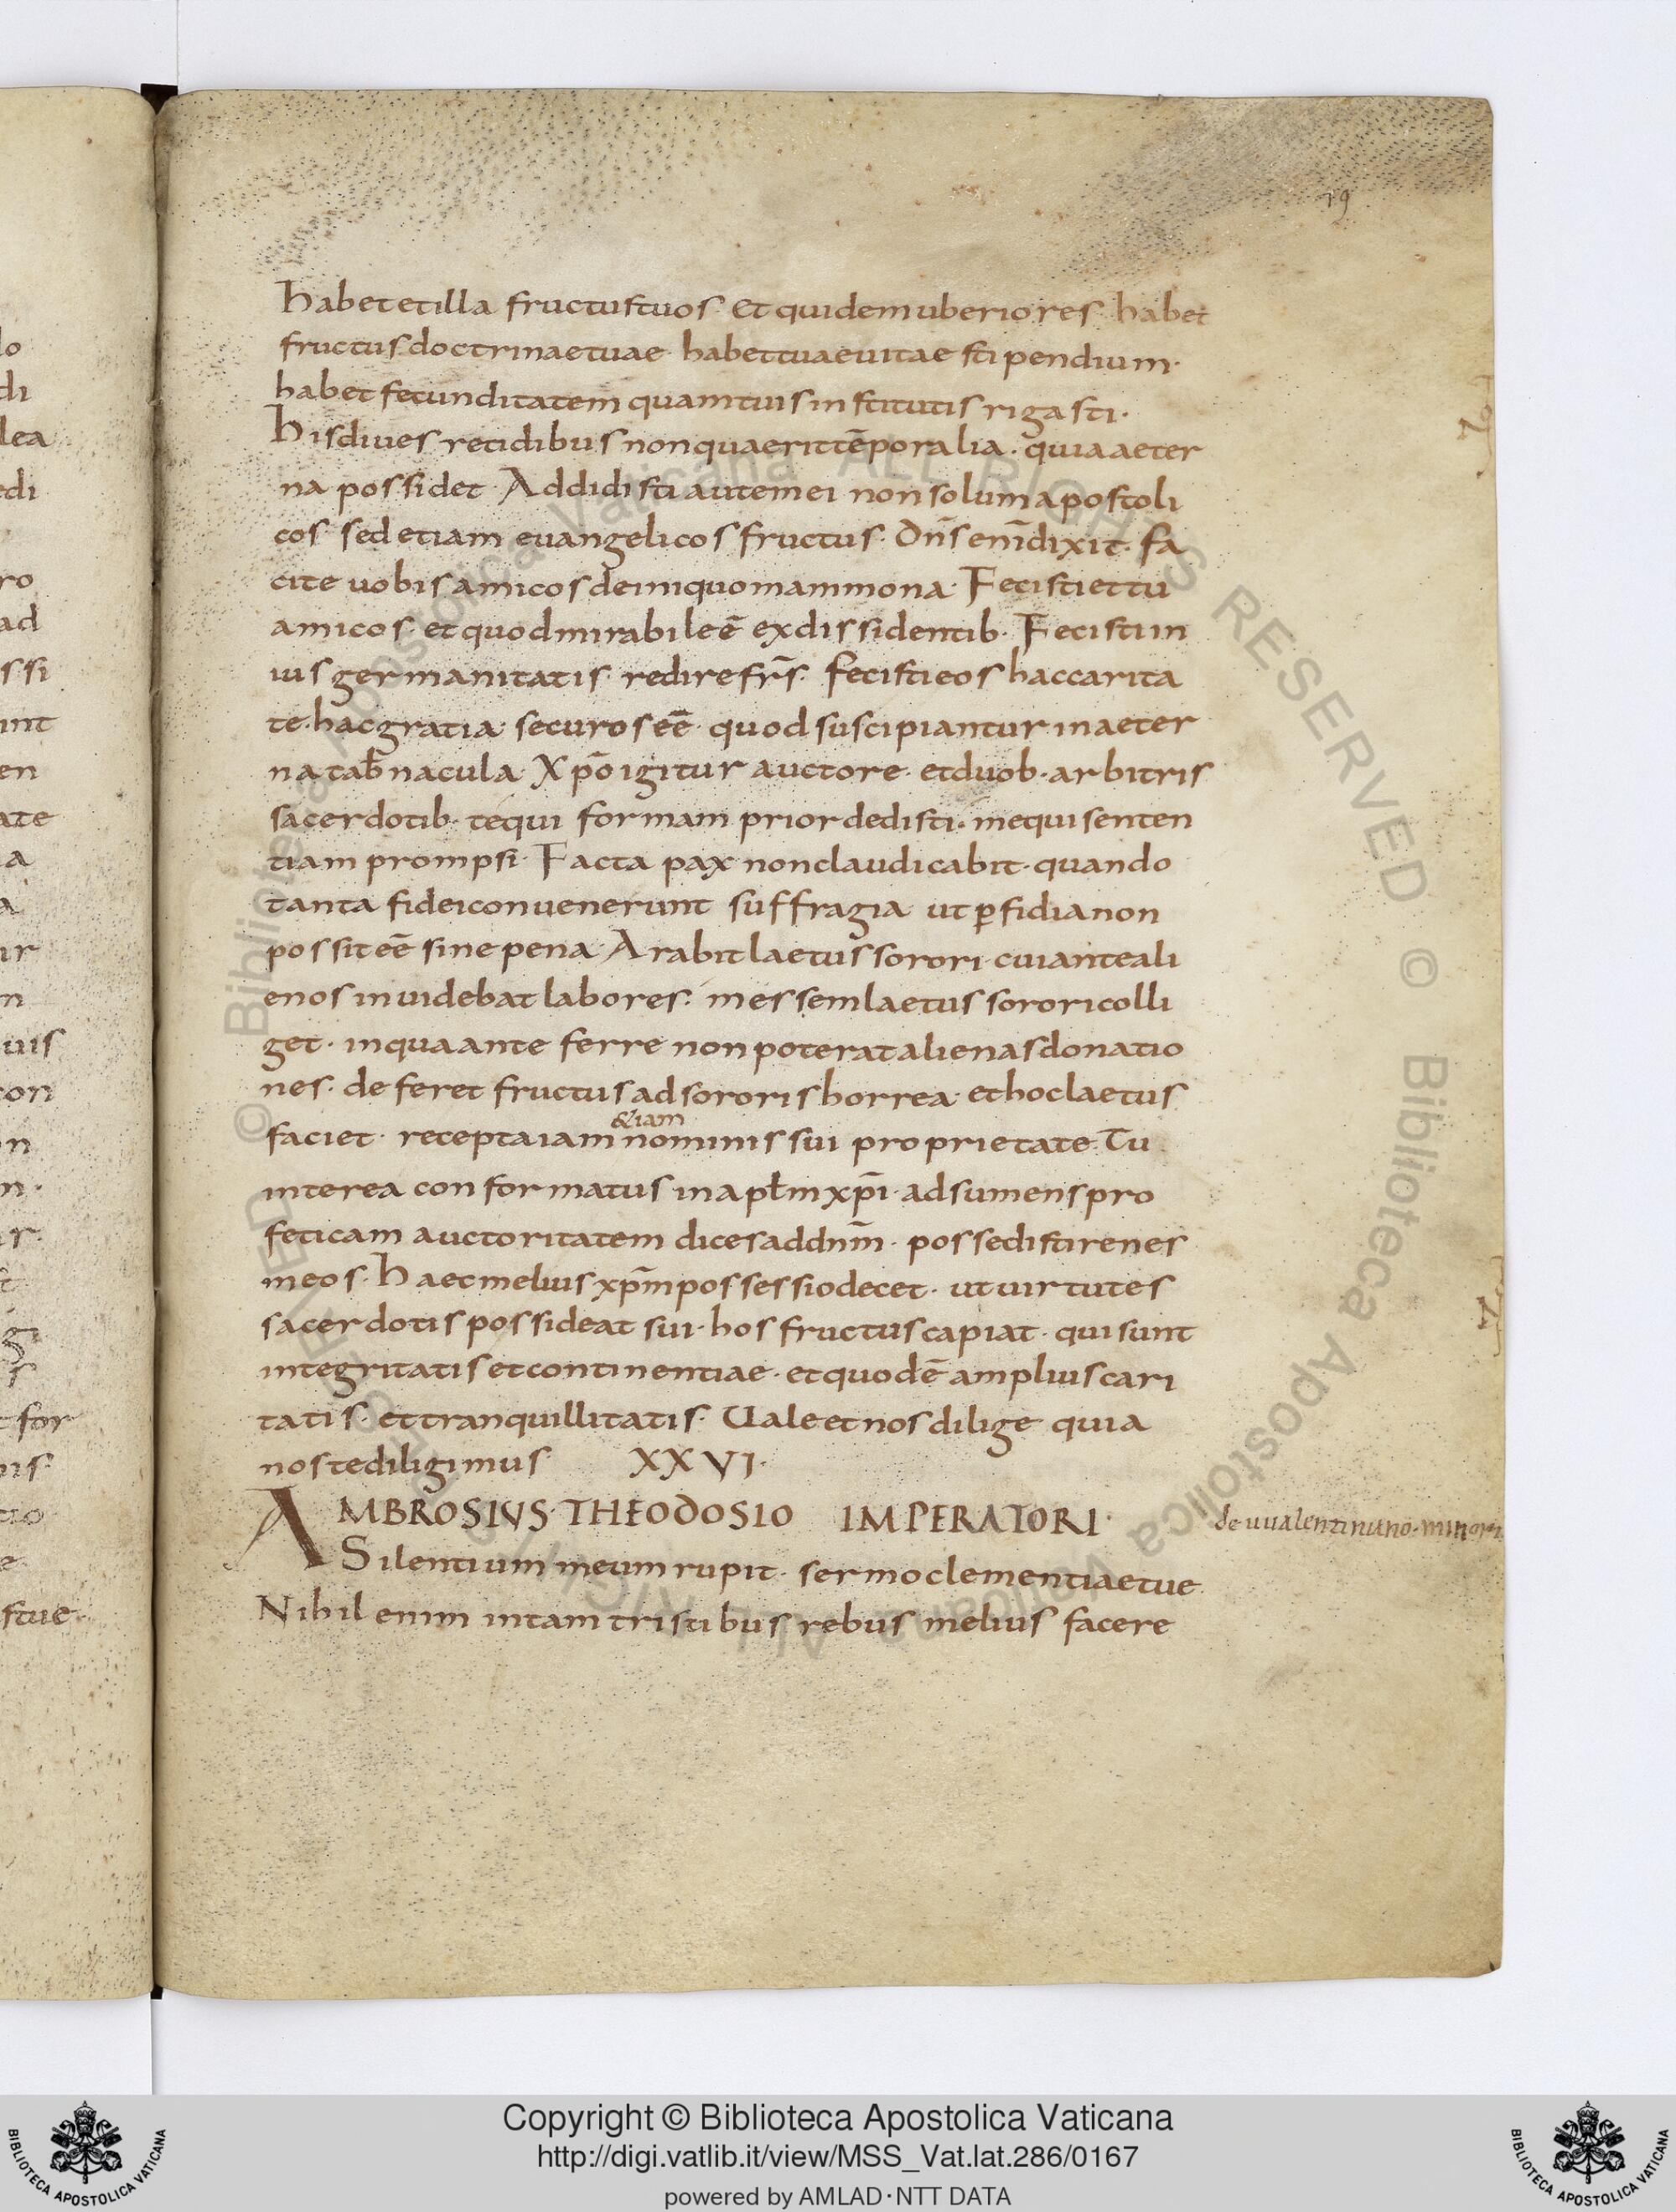 79
habet et illa fructus tuos· et quidem uberiores habet
fructus doctrinae tuae· habet tuae uitae stipendium·
habet fecunditatem quam tuis institutis rigasti·
his diues retidibus non quaerit tēporalia· quia aeter
na possidet· Addidisti autem ei non solum apostoli
cos sed etiam euangelicos fructus· dn̄s enī dixit· fa
cite uobis amicos de iniquo mammona· Fecisti et tu
amicos· et quod mirabile ē ex dissidentib· Fecisti in
ius germanitatis redire fr̄s· fecisti eos hac carita
te· hac gratia securos eē· quod suscipiantur in aeter
na tab̄nacula· Xp̄o igitur auctore· et duob· arbitris
sacerdotib· te qui formam prior dedisti· me qui senten
tiam prompsi· Facta pax non claudicabit· quando
tanta fidei conuenerunt suffragia ut ꝑfidia non
possit eē sine pena· Arabit laetus sorori cui ante ali
enos inuidebat labores· messem laetus sorori colli
get· in qua ante ferre non poterat alienas donatio
nes· deferet fructus ad sororis horrea· et hoc laetus
&iam
faciet· recepta iam nominis sui proprietate· Tu
interea conformatus in apl̄m xp̄i· adsumens pro
feticam auctoritatem dices ad dnm̄· possedisti renes
meos· Haec melius xp̄m possessio decet· ut uirtutes
sacerdotis possideat sui· hos fructus capiat· qui sunt
integritatis et continentiae· et quod ē amplius cari
tatis· et tranquillitatis· Uale et nos dilige quia
nos te diligimus· XXVI·
AMBROSIVS· THEODOSIO IMPERATORI· de uualentiniano· minori
Silentium meum rupit· sermo clementiae tue
Nihil enim in tam tristibus rebus melius facere
lo
di
lea
edi
ro
ad
ssi
unt
en
ate
a
a
ur
n
uis
con
on
n·
ir·
t
gi
s
t for
nis·
tio
e·
stue·
© Biblioteca Apostolica Vaticana ALL RIGHTS RESERVED © Biblioteca Apostolica Vaticana ALL RIGHTS RESERVED
Copyright © Biblioteca Apostolica Vaticana
http://digi.vatlib.it/view/MSS_Vat.lat.286/0167
powered by AMLAD·NTT DATA
BIBLIOTECA APOSTOLICA VATICANA
BIBLIOTECA APOSTOLICA VATICANA